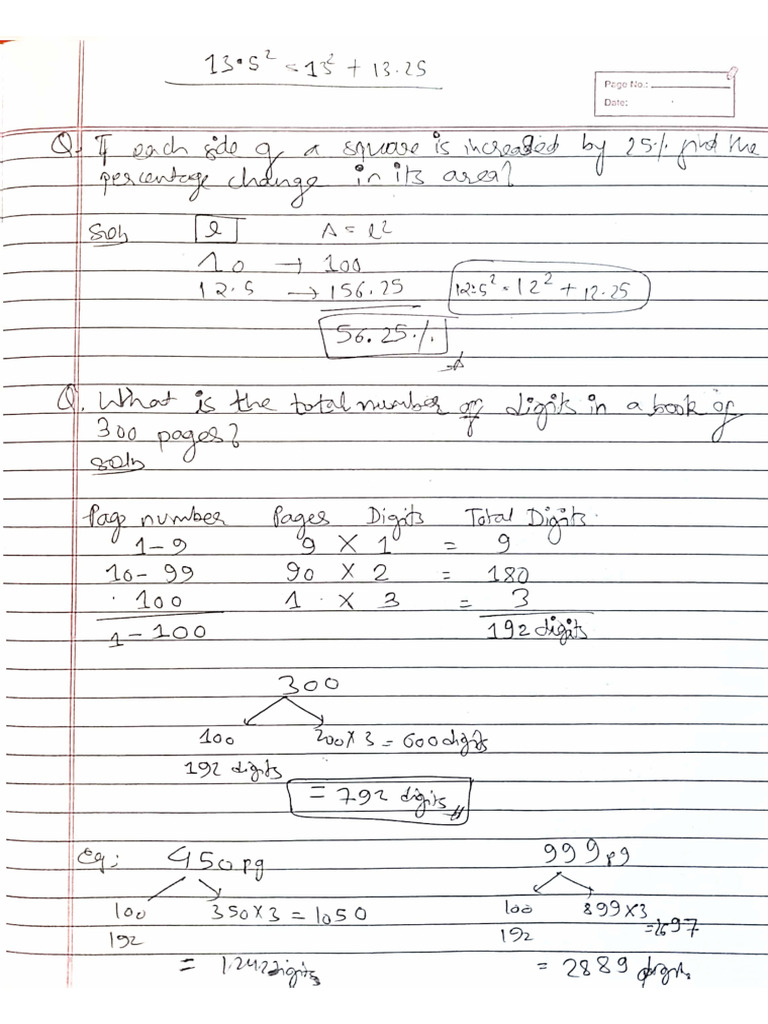 13.5² = 13² + 13.25
Page No.:
Date:
Q. If each side of a square is increased by 25% find the
percentage change in its area?
Soln l A = l²
10 → 100
12.5 → 156.25 12.5² = 12² + 12.25
56.25%
Q. What is the total number of digits in a book of
300 pages?
soln
Page number Pages Digits Total Digits.
1-9 9 X 1 = 9
10-99 90 X 2 = 180
100 1 X 3 = 3
1-100 192 digits
300
100 200 X 3 = 600 digits
192 digits
= 792 digits
Eg: 450 pg 999 pg
100 350 X 3 = 1050 100 899 X 3
192 192 = 2697
= 1242 digits = 2889 digits